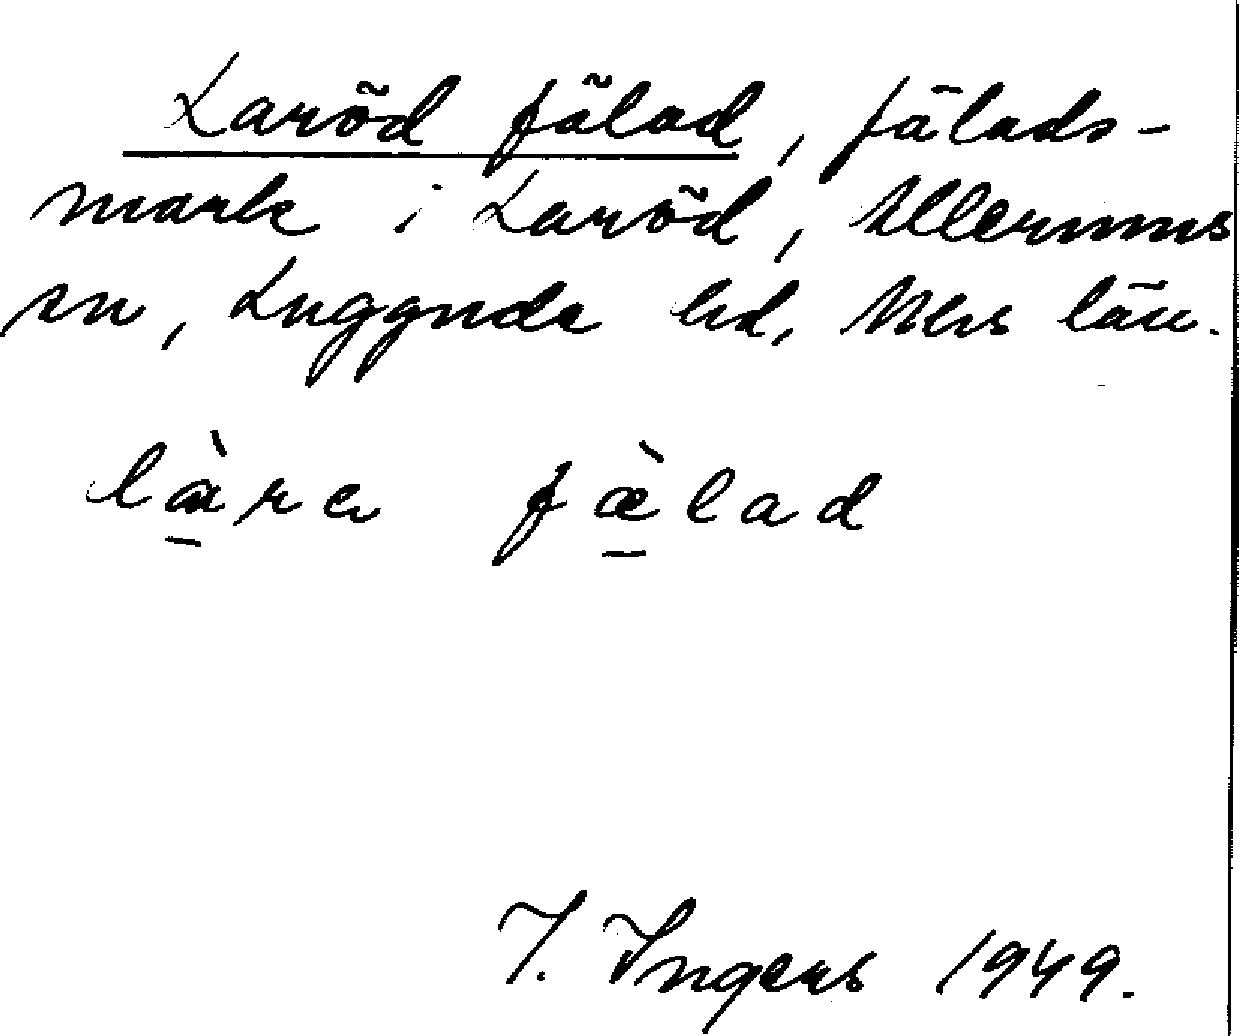 Laröd fälad, fälads-
mark i Laröd, Allerums
sn, Luggude hd, Mhs län.
làra fæ̀lad
I. Ingers 1949.